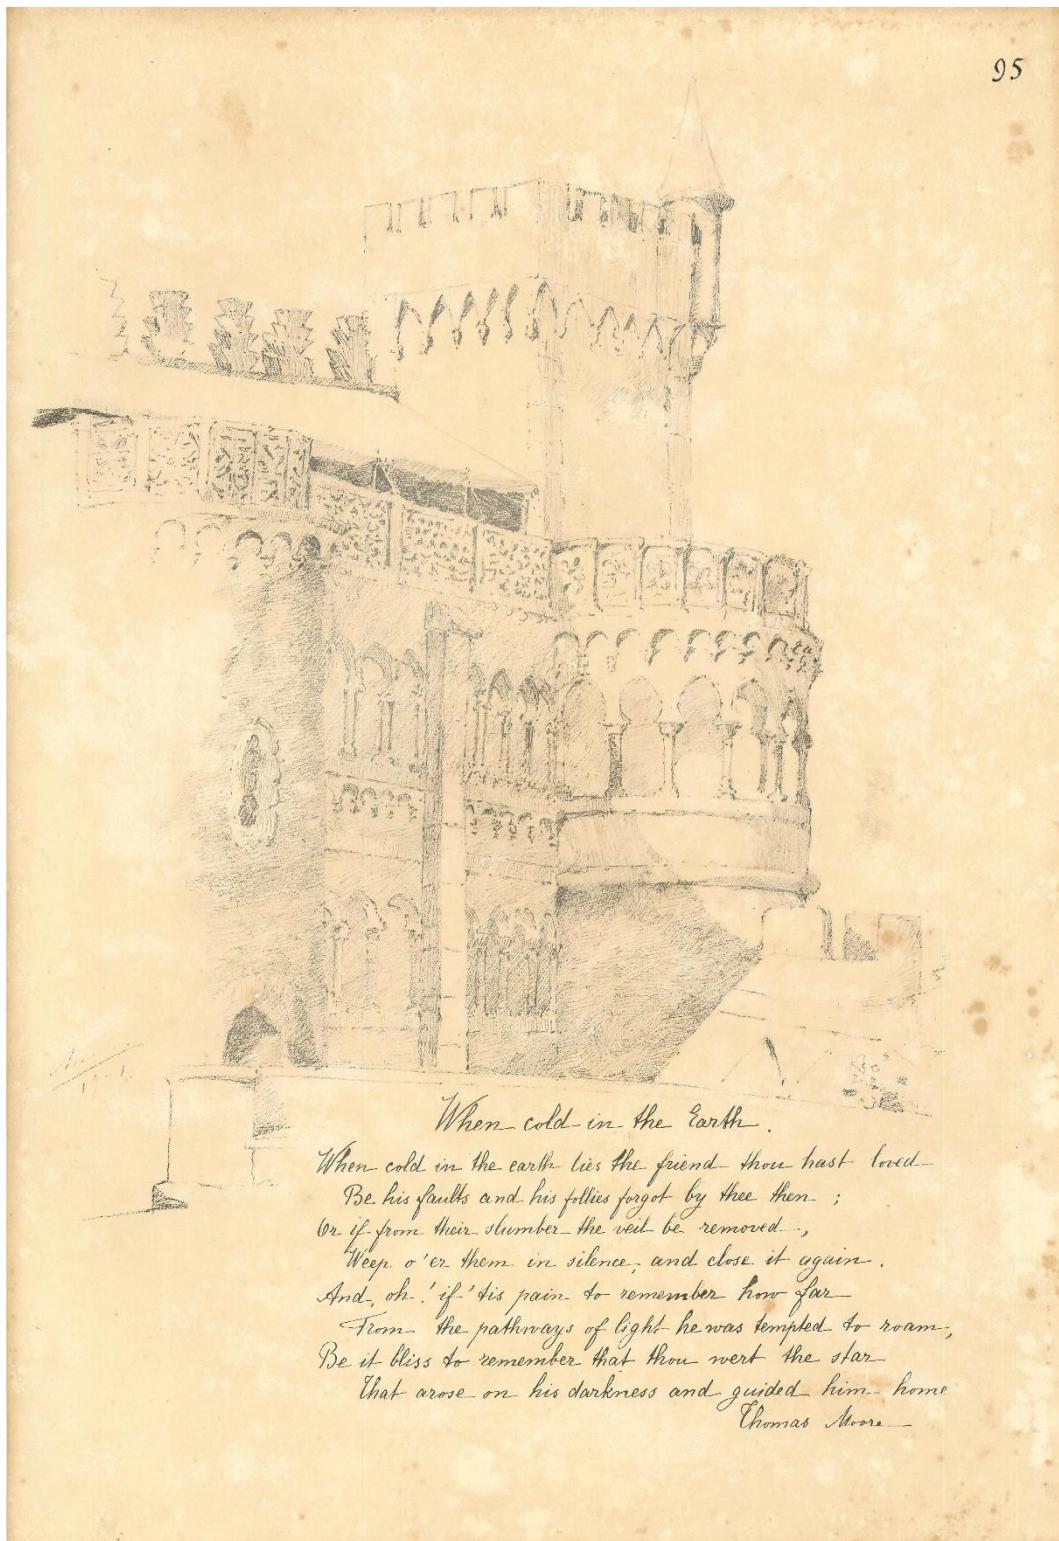 95
When cold in the Earth.
When cold in the earth lies the friend thou hast loved
Be his faults and his follies forgot by thee then ;
Or if from their slumber the veil be removed,
Weep o'er them in silence, and close it again.
And, oh! if 'tis pain to remember how far
From the pathways of light he was tempted to roam,
Be it bliss to remember that thou wert the star
That arose on his darkness and guided him home
Thomas Moore